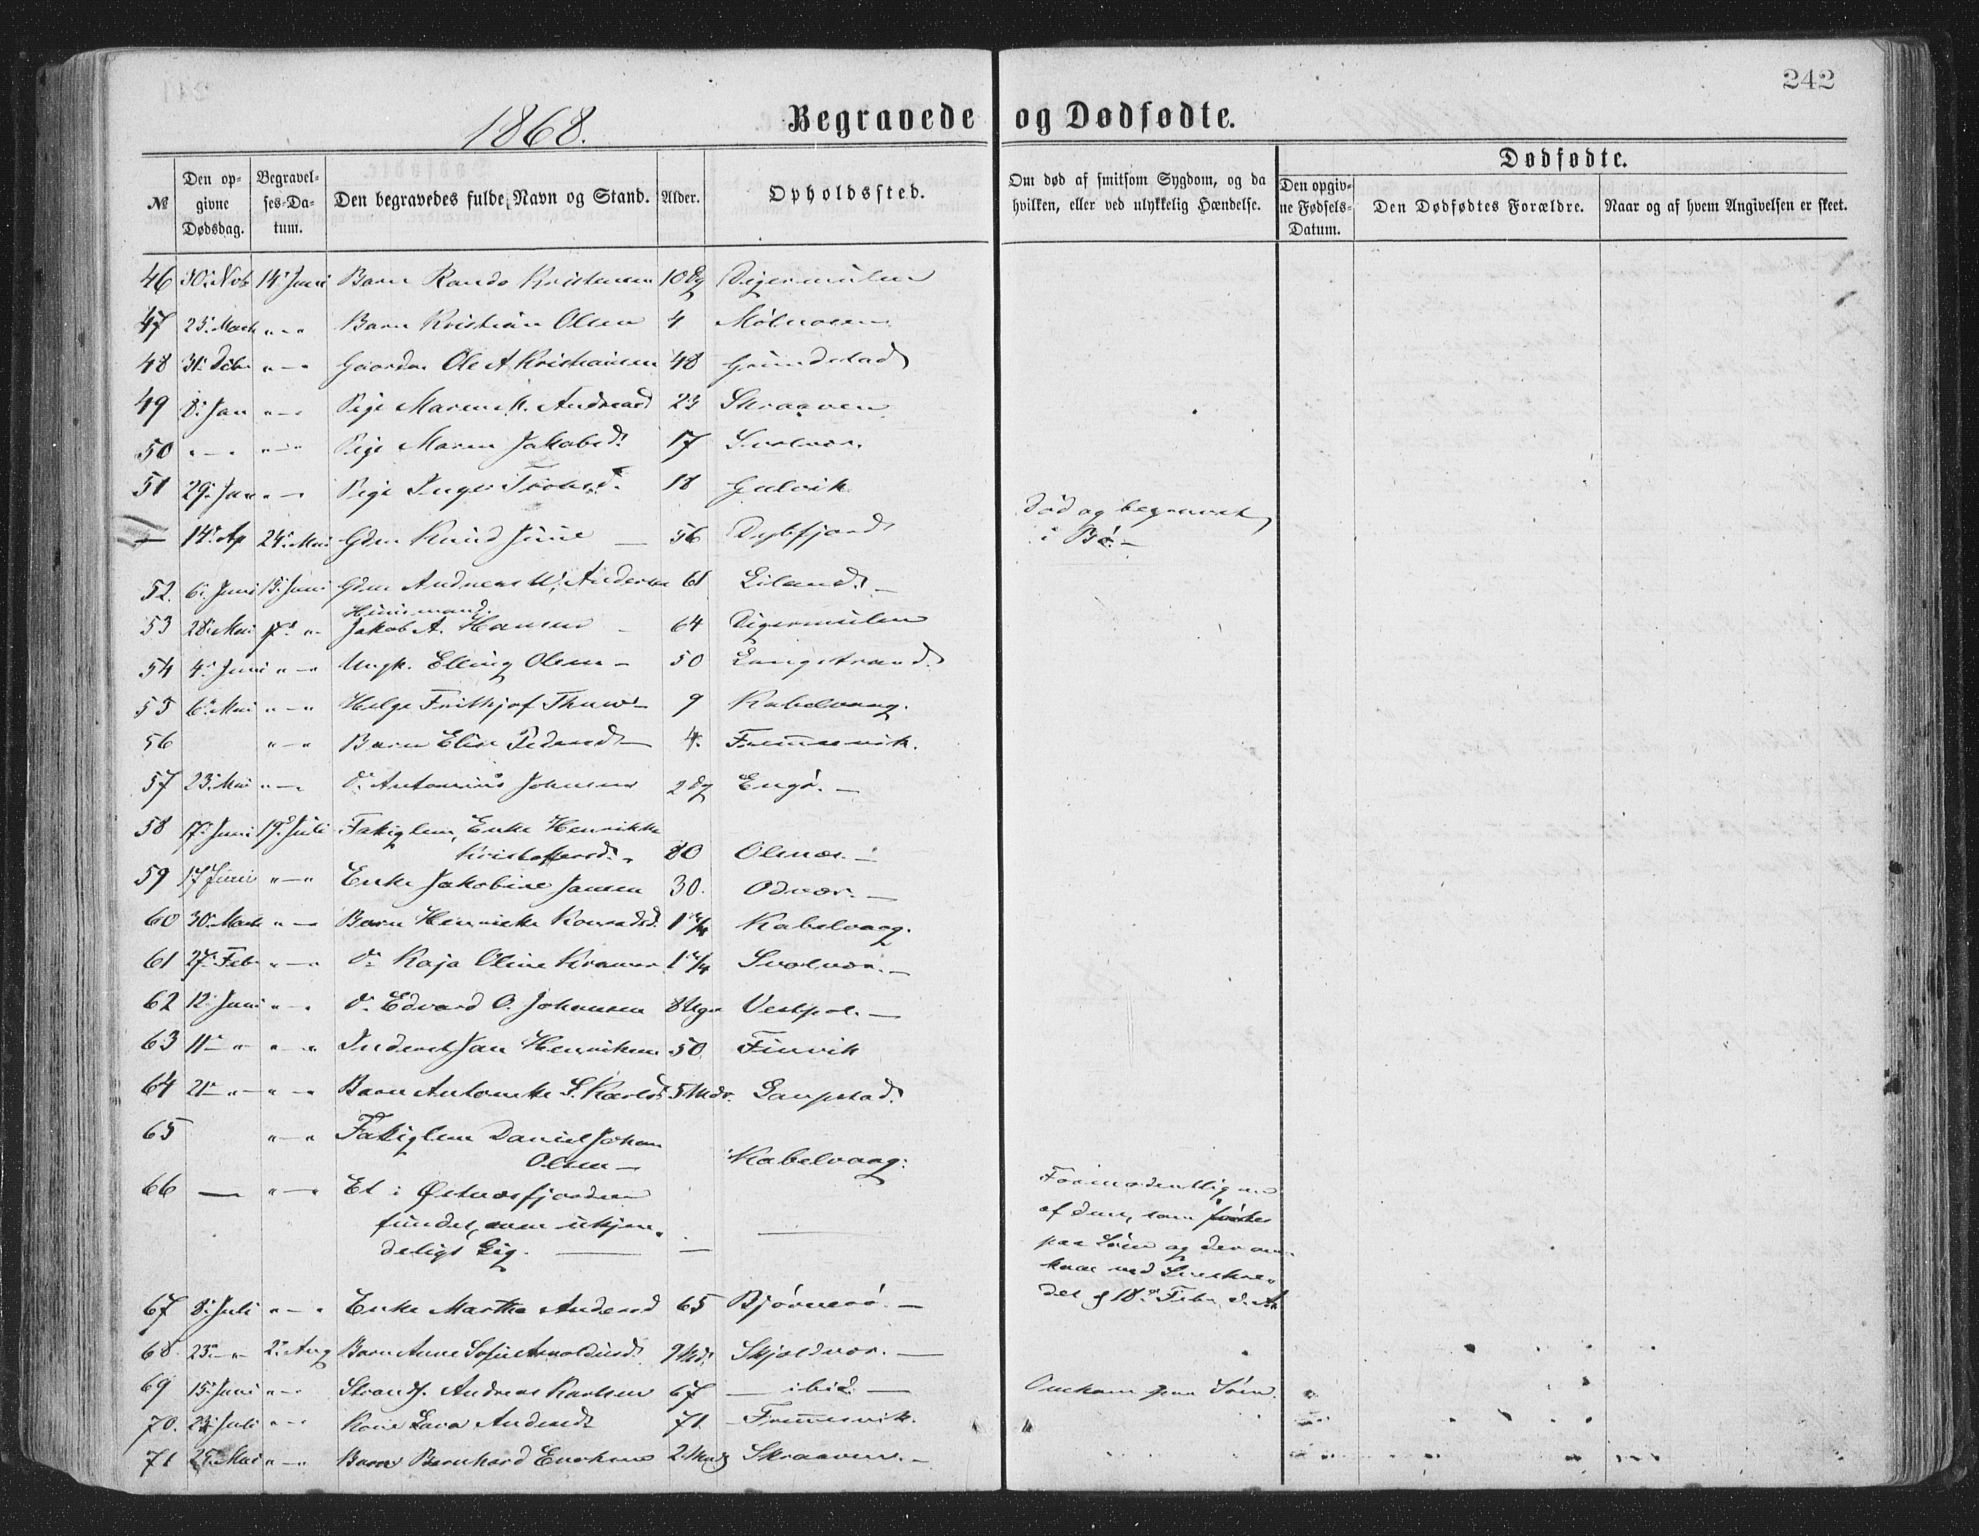 242
1868.
Begravede og Dødfødte.
№
Den opgivne Dødsdag.
Begravelses-Datum.
Den begravedes fulde Navn og Stand.
Alder.
Opholdssted.
Om død af smitsom Sygdom, og da hvilken, eller ved ulykkelig Hændelse.
Dødfødte.
Den opgivne Fødsels-Datum.
Den Dødfødtes Forældre.
Naar og af hvem Angivelsen er skeet.
46 30 Nov 14 Juni Barn Kristensen 10 Dg Digermulen
47 25 Marts " — " Barn Kristian Olsen 4 Molnosen
48 31 " — " Ole A Kristiansen 48 Grundstad
49 8 Jan " — " Pige Maren K. Andreasd 23 Skraaven
50 " — " " — " Pige Maren Jakobsd. 17 Svolvær.
51 29 Jan " — " Pige Inger 18 Gulvik
— 14 Ap 24 Mai Gdm Knud June — 56 Dybfjord
Død og begravet
i Bø. —
52. 6 Juni 15 Juni Gdm Andreas Andersen 61 Liland. —
53 28 Mai " Huusmand. Jakob A. Hansen — 64 Digermulen
54 4 Juni " — " Ungk. Elling Olsen — 50 Langstrand.
55 6 Mai " — " Helge Frithjof — 9 Kabelvaag.
56 " — " Barn Elise Pedersd — 4. Fremmesvik.
57 23 Mai " — " Do Antonius Johnsen 2 Dg Engø. —
58 17 Juni 19 Juli Fatiglem, Enke Henrikke
Kristoffersd. 80 Olsnæs. —
59 17 Juni " — " Enke Jakobine Jansen 30. Odvær. —
60 30 Marts " — " Barn Henrikke Konradsd. 1 Kabelvaag.
61 27 Febr " — " Do Kaja Oline Kramer 1 Svolvær. —
62 12 Juni " — " Do Edvard O. Johansen 8 Uger Vestpol. —
63 11 " " — " Inderst Jan Henriksen 50 Finvik
64 21 — " — " — " Barn Antonette S. Karlsd 5 Mdr. Laupstad.
65 " — " Fatiglem Daniel Johan
Olsen — Kabelvaag.
66 — " — " Et i Østnæsfjorden
fundet, men ukjen-
deligt Lig. — — —
Formodentlig en
af dem, som
paa Søen og der om-
kom ved
det 18 Febr. d. A.
67 8 Juli " — " Enke Martha Andersd 65 Bjørnerø. —
68. 23 — " — 2 Aug Barn Anne Sofie Arnoldusd. 9 Md. Skjoldvær. —
69 15 Juni " — " Strands. Andreas Karlsen 67 — ibid. — Omkom paa Søen.
70. 23 Juli " — " Kone Lava Andersd 71 — Fremmesvik.
71 25 Mai " — " Barn Bernhard 2 Skraaven. —